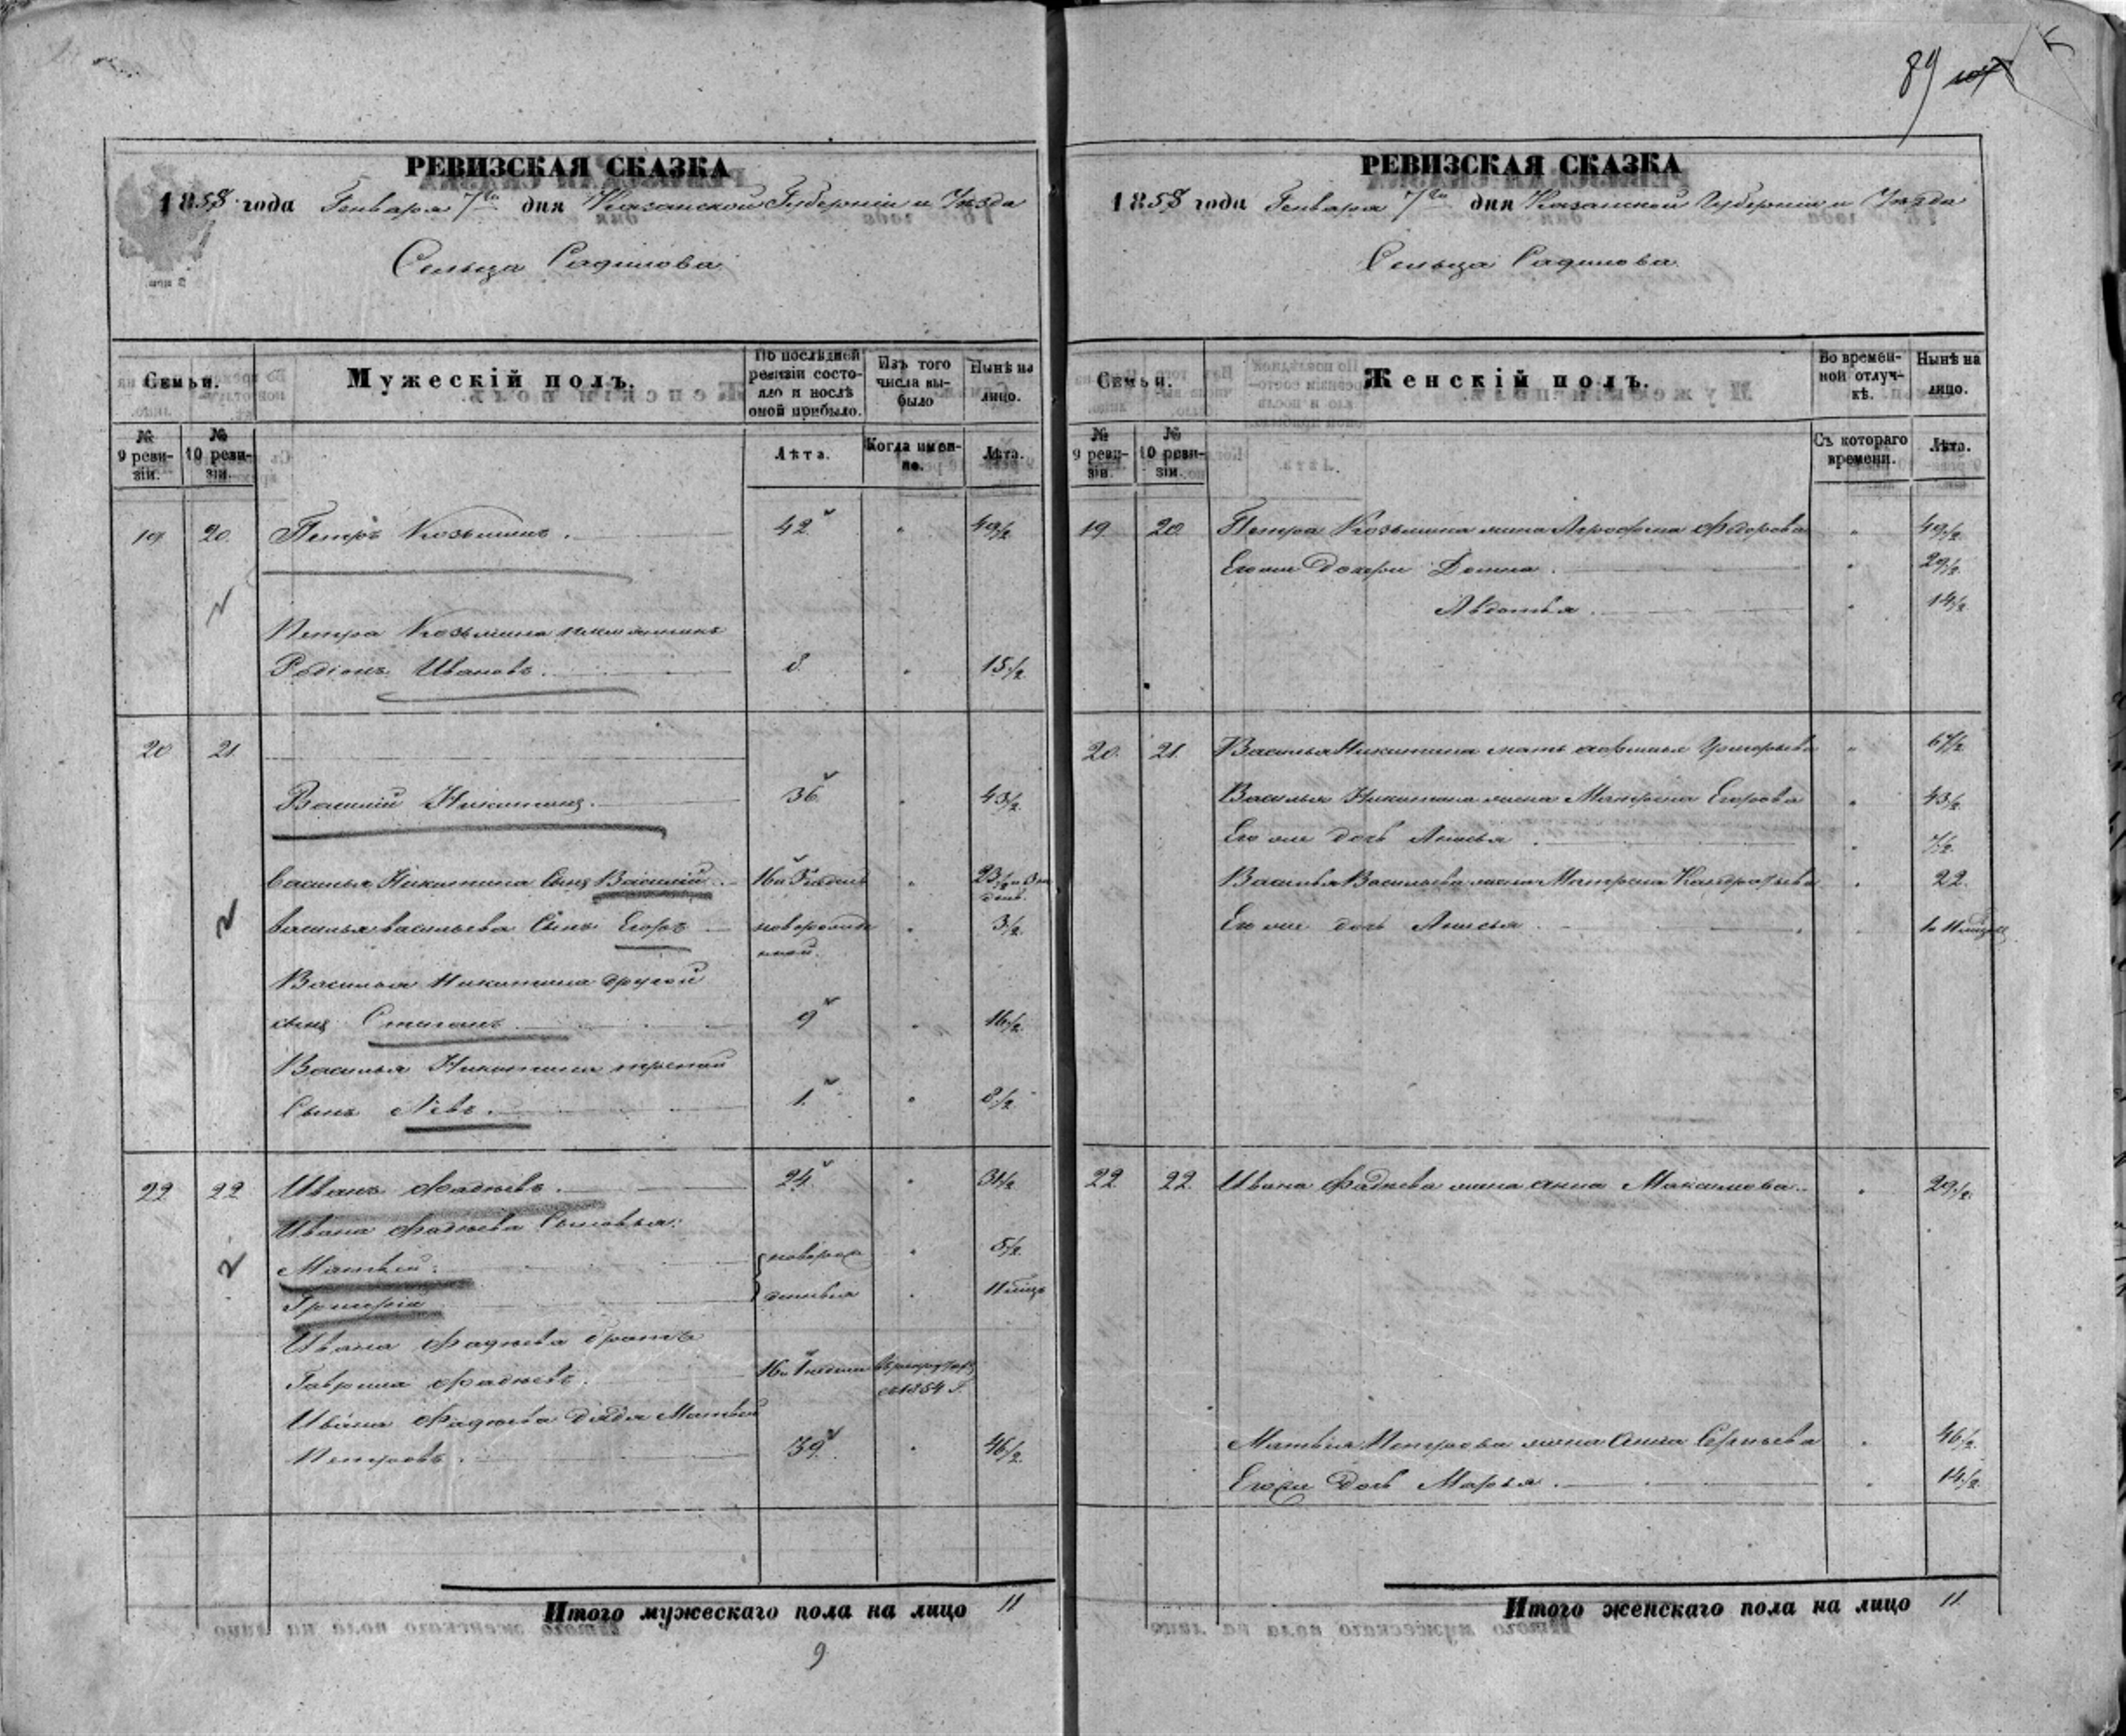 89
РЕВИЗСКАЯ СКАЗКА
1858 года Генваря 7го дня Казанской Губерніи и Уѣзда
Сельца Садилова
Семьи.
Мужескій полъ.
По послѣдней ревизіи состояло и послѣ оной прибыло.
Изъ того числа выбыло
Нынѣ на лицо.
№ 9 ревизіи.
№ 10 ревизіи.
Лѣта.
Когда именно.
Лѣта.
19 20 Петръ Козьминъ. 42 " 49½
Петра Козьмина племянникъ
Родіонъ Ивановъ. 8 " 15½
20 21
Василій Никитинъ. 36 " 43½
Василья Никитина сынъ Василій 16 " 23½
Василья Васильева сынъ Егоръ новорожденной. " 3½
Василья Никитина другой
сынъ Степанъ 9 " 16½
Василья Никитина третій
Сынъ Левъ. 1 " 8½
22 22 Иванъ Фадѣевъ. 24 " 31½
Ивана Фадѣева сыновья:
Матвей. новорож " 5½
Григорій денныя " 11 мѣсц
Ивана Фадѣева братъ
Гаврила Фадѣевъ. 16 въ рекрутахъ
съ 1854 г.
Ивана Фадѣева дядя Матвей
Петровъ. 39 " 46½
Итого мужескаго пола на лицо 11
9
РЕВИЗСКАЯ СКАЗКА
1858 года Генваря 7го дня Казанской Губерніи и Уѣзда
Сельца Садилова
Семьи.
Женскій полъ.
Во временной отлучкѣ.
Нынѣ на лицо.
№ 9 ревизіи.
№ 10 ревизіи.
Съ котораго времени.
Лѣта.
19 20 Петра Козьмина жена Афросина Федорова " 49½
Его же дочери Домна. " 29½
Авдотья. " 14½
20 21 Василья Никитина мать Афимья Григорьева " 67½
Василья Никитина жена Матрена Егорова " 43½
Его же дочь Анисья " ½
Василья Васильева жена Матрена Кандратьева " 22
Его же дочь Анисья
22 22 Ивана Фадѣева жена Анна Максимова. " 29½
Матвея Петрова жена Анна Сергѣева " 46½
Его же дочь Марья. " 14½
Итого женскаго пола на лицо 11